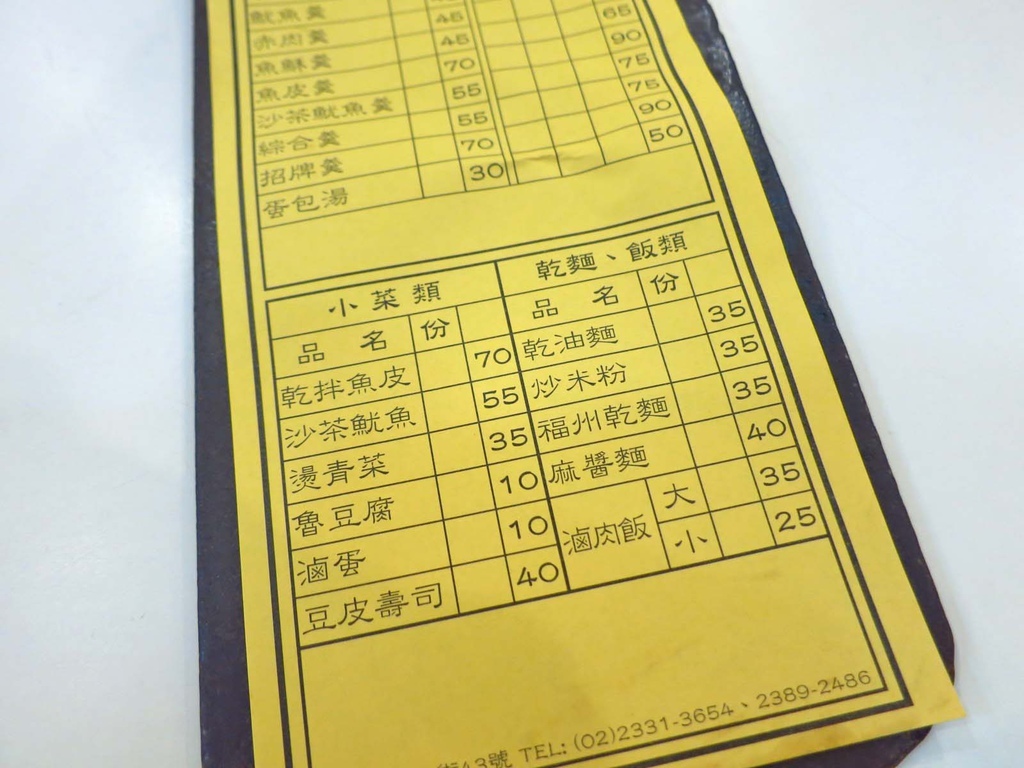 魷魚羹
赤肉羹 45
魚酥羹 45 65
魚皮羹 70 90
沙茶魷魚羹 55 75
綜合羹 55 75
招牌羹 70 90
蛋包湯 30 50
小菜類
品名 份
乾拌魚皮 70
沙茶魷魚 55
燙青菜 35
魯豆腐 10
滷蛋 10
豆皮壽司 40
乾麵、飯類
品名 份
乾油麵 35
炒米粉 35
福州乾麵 35
麻醬麵 40
滷肉飯 大 35
小 25
街43號 TEL: (02)2331-3654、2389-2486